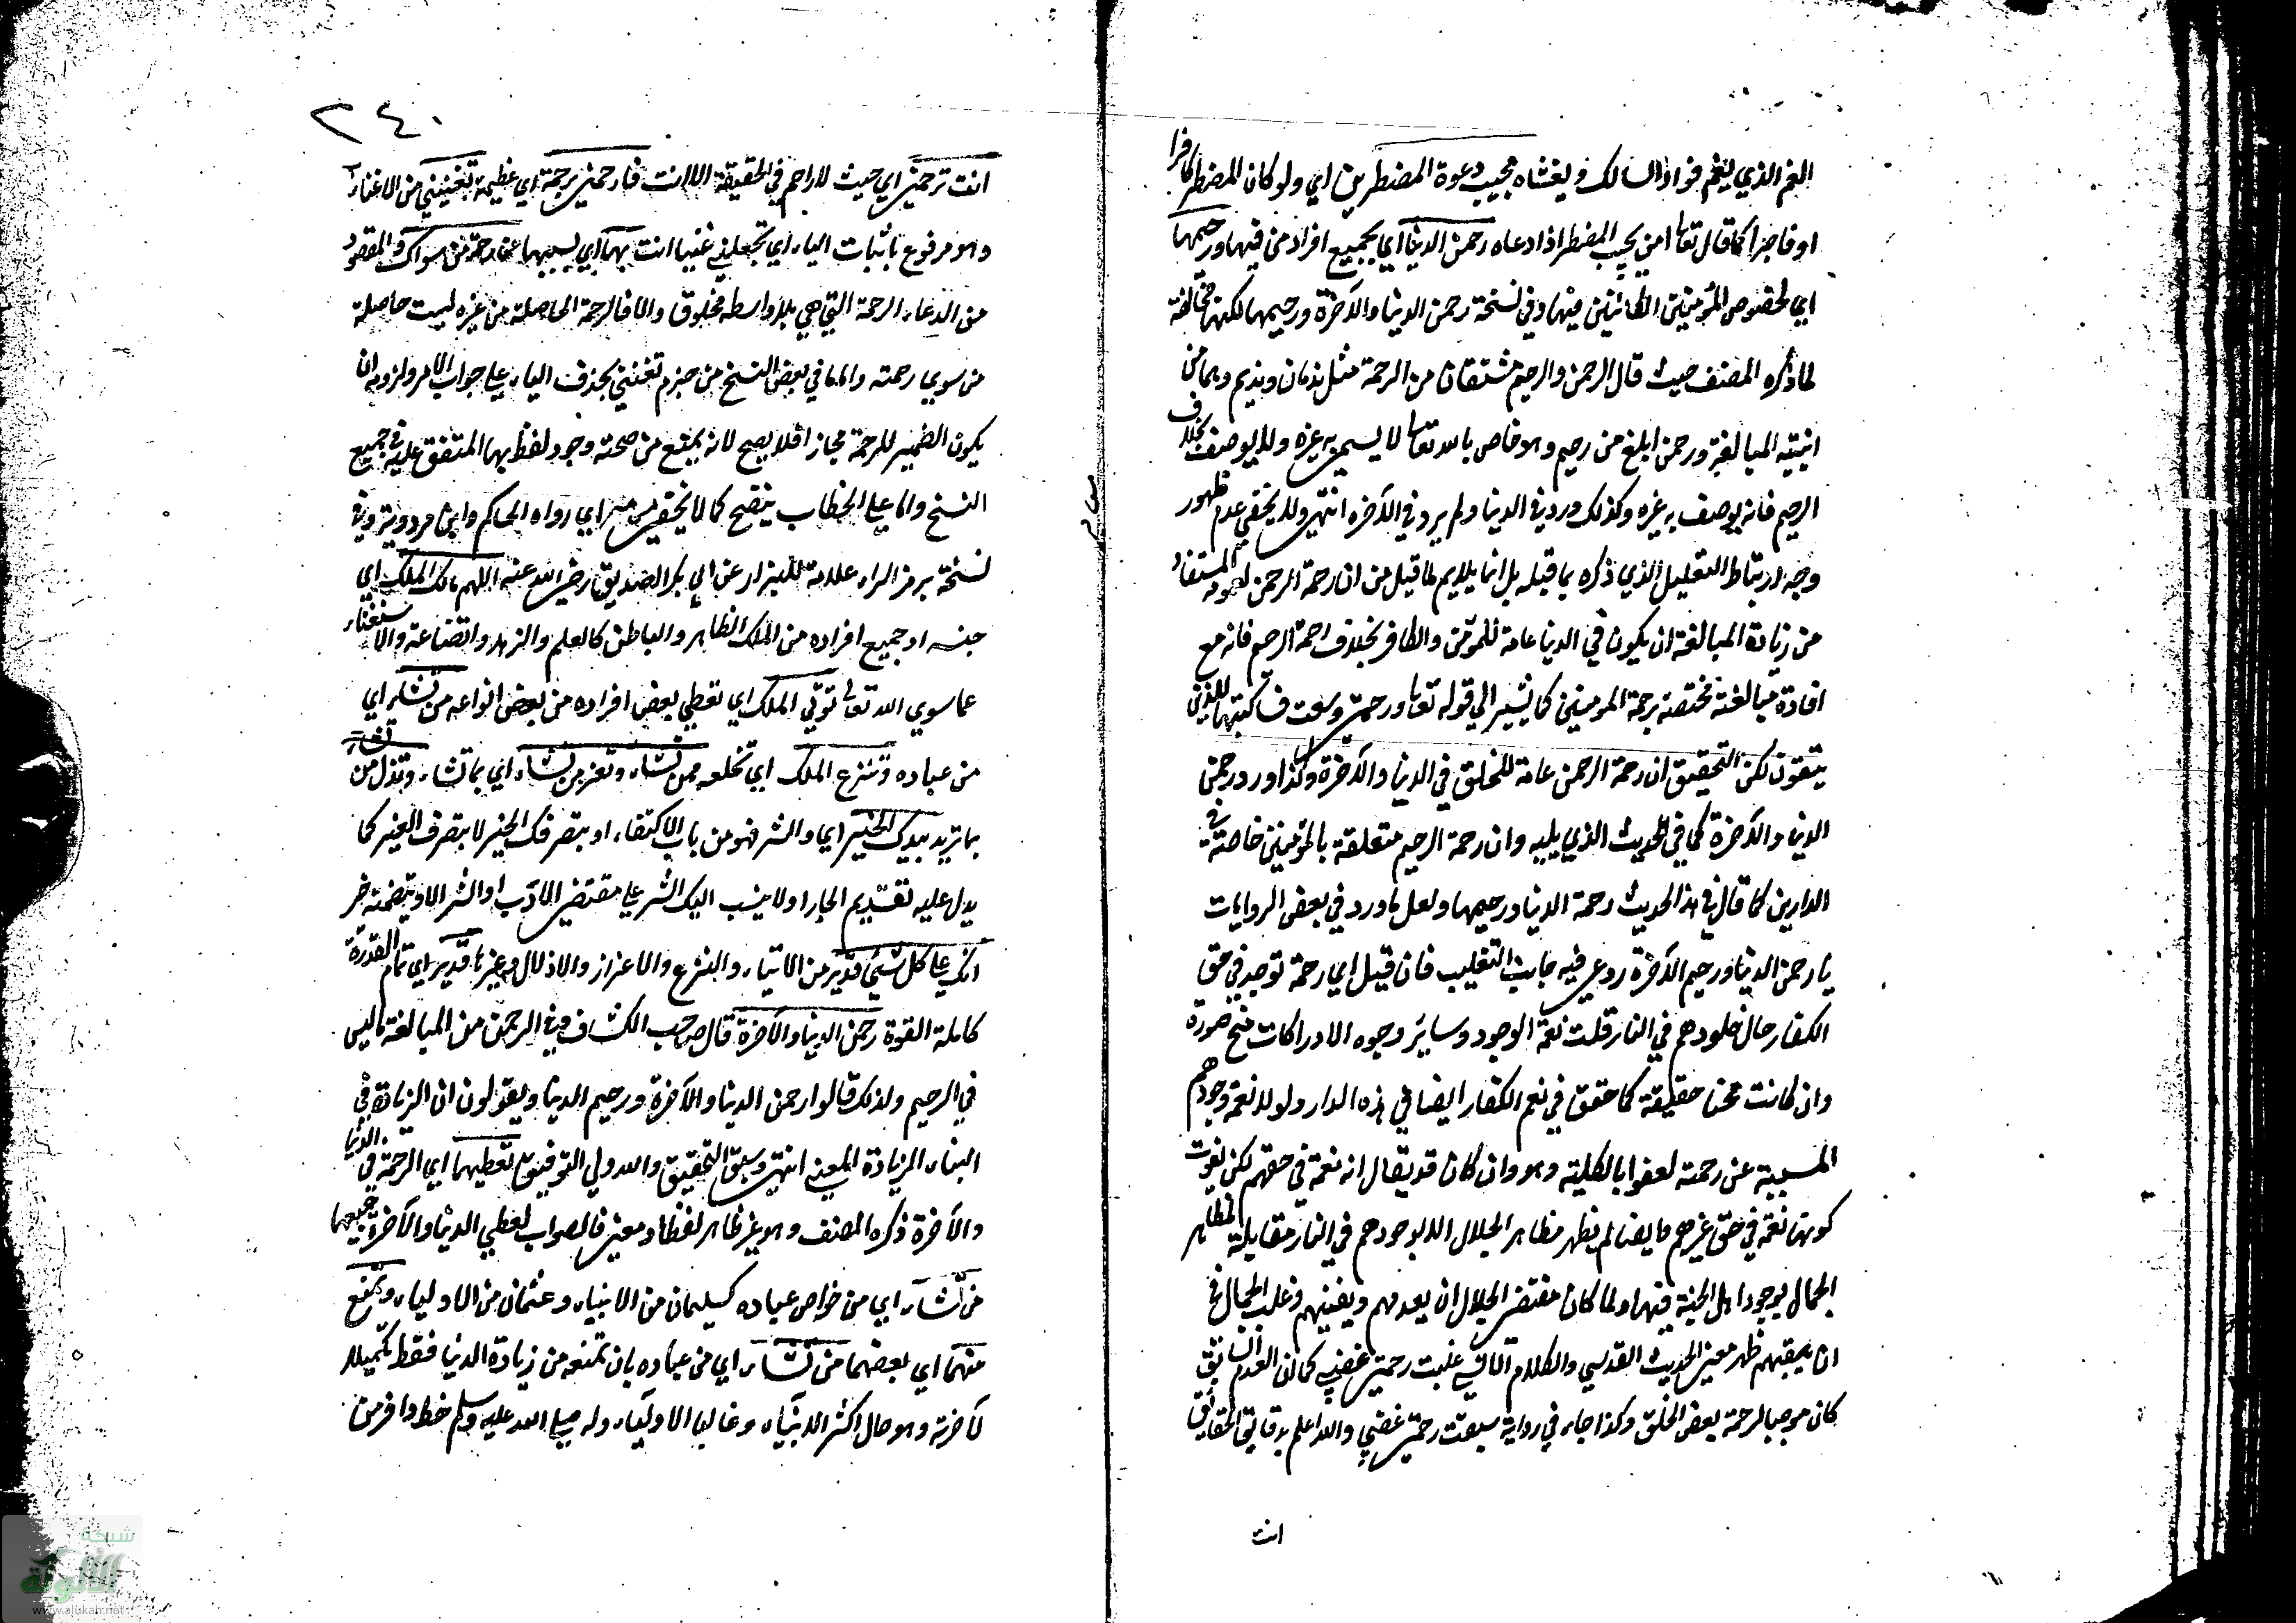 الغم الذي يغم فواد السالك ويغشاه مجيب دعوة المضطرين اي ولو كان المضطر كافرا
او فاجرا كما قال تعا امن يجيب المضطر اذا دعاه رحمن الدنيا اي بجميع افراد من فيها ورحيمها
اي لخصوص المؤمنين الكائنين فيها وفي نسخة رحمن الدنيا والآخرة ورحيمهما لكنها مخالفة
لما ذكره المصنف حيث قال الرحمن والرحيم مشتقان من الرحمة مثل ندمان ونديم وهما من
ابنية المبالغة ورحمن ابلغ من رحيم وهو خاص بالله تعا لا يسمى به غيره ولا يوصف بخلاف
الرحيم فانه يوصف به غيره وكذلك ورد في الدنيا ولم يرد في الآخرة انتهى ولا يخفى عدم ظهور
وجه ارتباط التعليل الذي ذكره بما قبله بل انما يلايم لما قيل من ان رحمة الرحمن لعمومه المستفاد
من زيادة المبالغة ان يكون في الدنيا عامة للمؤمن والكافر بخلاف رحمة الرحيم فانه مع
افادة مبالغة مختصة برحمة المومنين كما يشير الي قوله تعا ورحمتي وسعت فساكتبها للذين
يتقون لكن التحقيق ان رحمة الرحمن عامة للخلق في الدنيا والآخرة وكذا ورد رحمن
الدنيا والآخرة كما في الحديث الذي يليه وان رحمة الرحيم متعلقة بالمؤمنين خاصة في
الدارين كما قال في هذا الحديث رحمة الدنيا ورحيمها ولعل ما ورد في بعض الروايات
يا رحمن الدنيا ورحيم الآخرة روعي فيه جانب التغليب فان قيل اي رحمة توجد في حق
الكفار حال خلودهم في النار قلت نعمة الوجود وساير وجوه الادراكات منح صورة
وان كانت محنا حقيقة كما حقق في نعم الكفار ايضا في هذه الدار ولولا نعمة وجودهم
المسببة عن رحمته لعفوا بالكلية وهو وان كان قد يقال انه نعمة في حقهم لكن يفوت
كونها نعمة في حق غيرهم وايضا لم يظهر مظاهر الجلال الا بوجودهم في النار مقابلة لمظاهر
الجمال بوجود اهل الجنة فيها ولما كان مقتضى الجلال ان يعدمهم ويفنيهم وغلب الجمال في
ان يبقيهم ظهر معنى الحديث القدسي والكلام الانسي غلبت رحمتي غضبي كما ان العدم السابق
كان موجبا لرحمة بعض الخلق وكذا جاء في رواية سبقت رحمتي غضبي والله اعلم بدقايق الحقائق
انت
٢٤٠
انت ترحمني اي حيث لا راحم في الحقيقة الا انت فارحمني برحمة اي عظيمة تغنيني من الاغناء
وهو مرفوع باثبات الياء اي تجعلني غنيا انت بها اي بسببها عن رحمة من سواك والمقصود
من الدعاء الرحمة التي هي بلا واسطه مخلوق والا فالرحمة الحاصلة من غيره ليست حاصلة
من سوي رحمته واما ما في بعض النسخ من جزم تغنني بحذف الياء علي جواب الامر ولزومه ان
يكون الضمير للرحمة مجازا فلا يصح لانه يمنع من صحته وجود لفظ بها المتفق عليه في جميع
النسخ واما علي الخطاب يتضح كما لا يخفى مس مر اي رواه الحاكم وابن مردويه وفي
نسخة برمز الراء علامة للبزار عن ابي بكر الصديق رضي الله عنه اللهم مالك الملك اي
جنسه او جميع افراده من الملك الظاهر والباطن كالعلم والزهد والقناعة والاستغناء
عما سوي الله تعالي تؤتي الملك اي تعطي بعض افراده من بعض انواعه من تشاء اي
من عباده وتنزع الملك اي تخلعه ممن تشاء وتعز من تشاء اي بما تشاء وتذل من تشاء
بما تريد بيدك الخير اي والشر فهو من باب الاكتفاء او بتصرفك الخير لا بتصرف الغير كما
يدل عليه تقديم الجار او لا ينسب اليك الشر علي مقتضى الادب او الشر الا ويتضمنه خر
انك علي كل شيئ قدير من الاتياء والنزع والاعزاز والاذلال وغيرها قدير اي تام القدرة
كاملة القوة رحمن الدنيا والآخرة قال صاحب الكشاف وفي الرحمن من المبالغة ما ليس
في الرحيم ولذلك قالوا رحمن الدنيا والآخرة ورحيم الدنيا ويقولون ان الزيادة في
البناء لزيادة المعنى انتهى وسبق التحقيق والله ولي التوفيق تعطيهما اي الرحمة في الدنيا
والآخرة ذكره المصنف وهو غير ظاهر لفظا ومعنى فالصواب تعطي الدنيا والآخرة جميعهما
من تشاء اي من خواص عباده كسليمان من الانبياء وعثمان من الاولياء وتمنع
منهما اي بعضهما من تشاء اي من عباده بان تمنعه من زيادة الدنيا فقط تكميلا
لآخرته وهو حال اكثر الانبياء وغالب الاولياء وله صلي الله عليه وسلم حظ وافر من
شبكة
الألوكة
www.alukah.net